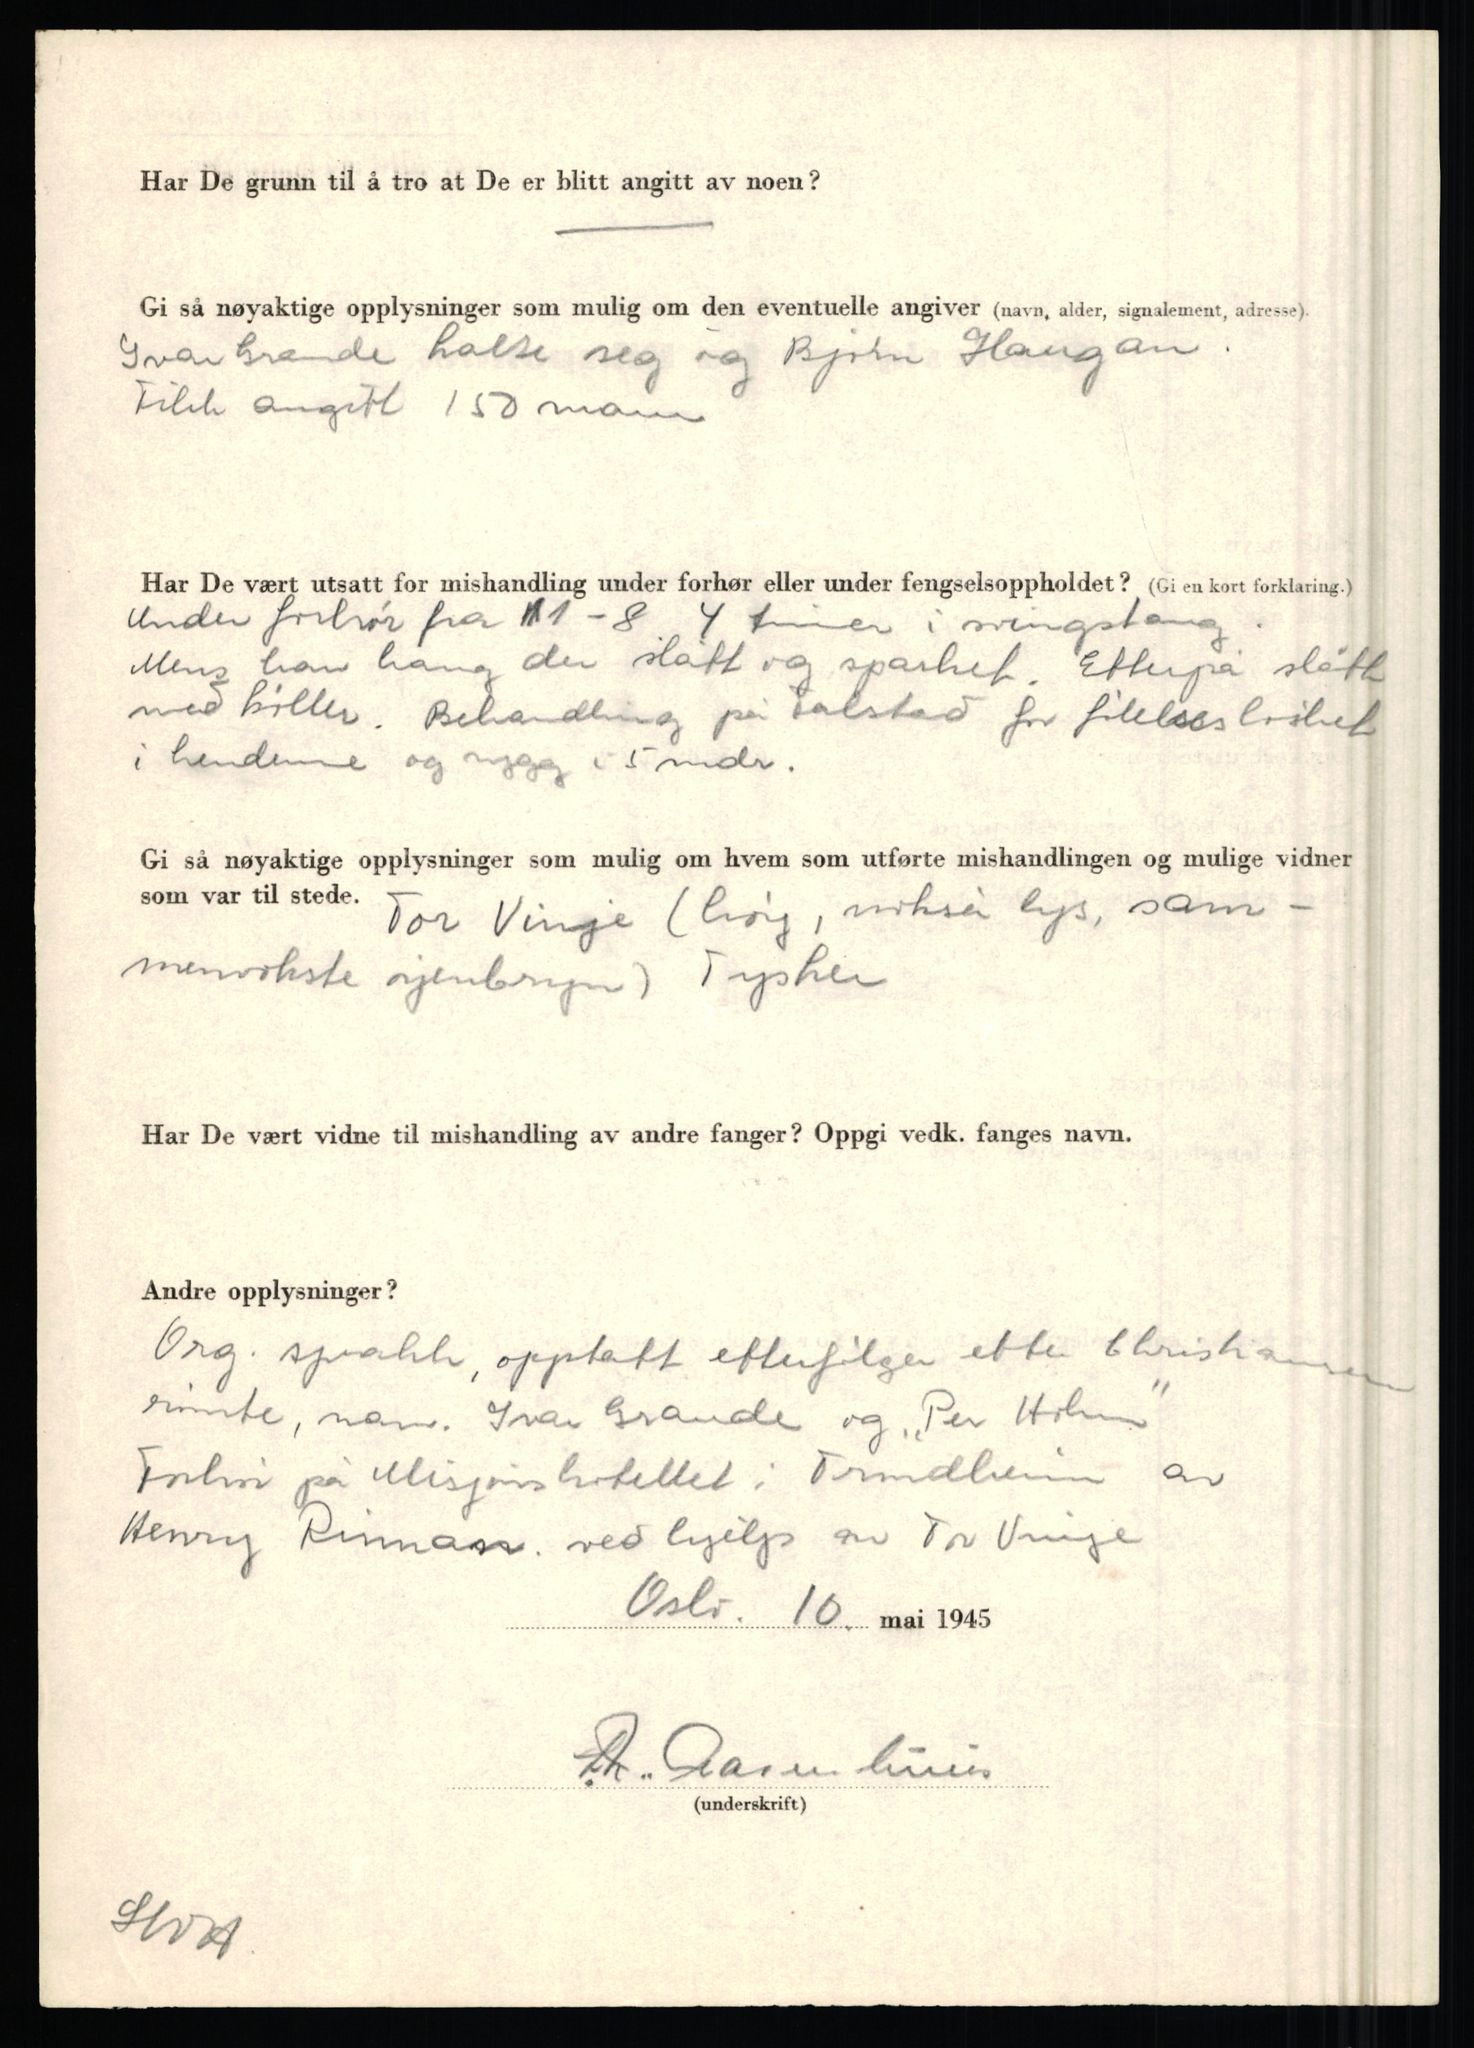 Har De grunn til å tro at De er blitt angitt av noen?
Gi så nøyaktige opplysninger som mulig om den eventuelle angiver (navn, alder, signalement, adresse).
Ivar Grande kalte seg og Bjørn Haugan.
Fikk angitt 150 mann
Har De vært utsatt for mishandling under forhør eller under fengselsoppholdet? (Gi en kort forklaring.)
Under forhør fra 11-8 4 timer i svingstang.
Mens han hang der slått og sparket. Etterpå slått
med køller. Behandling på Falstad for følelsesløshet
i hendene og rygg i 5 mdr.
Gi så nøyaktige opplysninger som mulig om hvem som utførte mishandlingen og mulige vidner
som var til stede. Tor Vinje (høy, mørk lys, sam-
menvokste øyenbryn) Tysker
Har De vært vidne til mishandling av andre fanger? Oppgi vedk. fanges navn.
Andre opplysninger?
Org. sprakk, opptatt etterfølger etter Christiansen
rømte, navn. Ivar Grande og „Per Holm"
Forhør på Misjonshotellet i Trondheim av
Henry Rinnan. ved hjelp av Tor Vinje
Oslo. 10. mai 1945
Aasen
(underskrift)